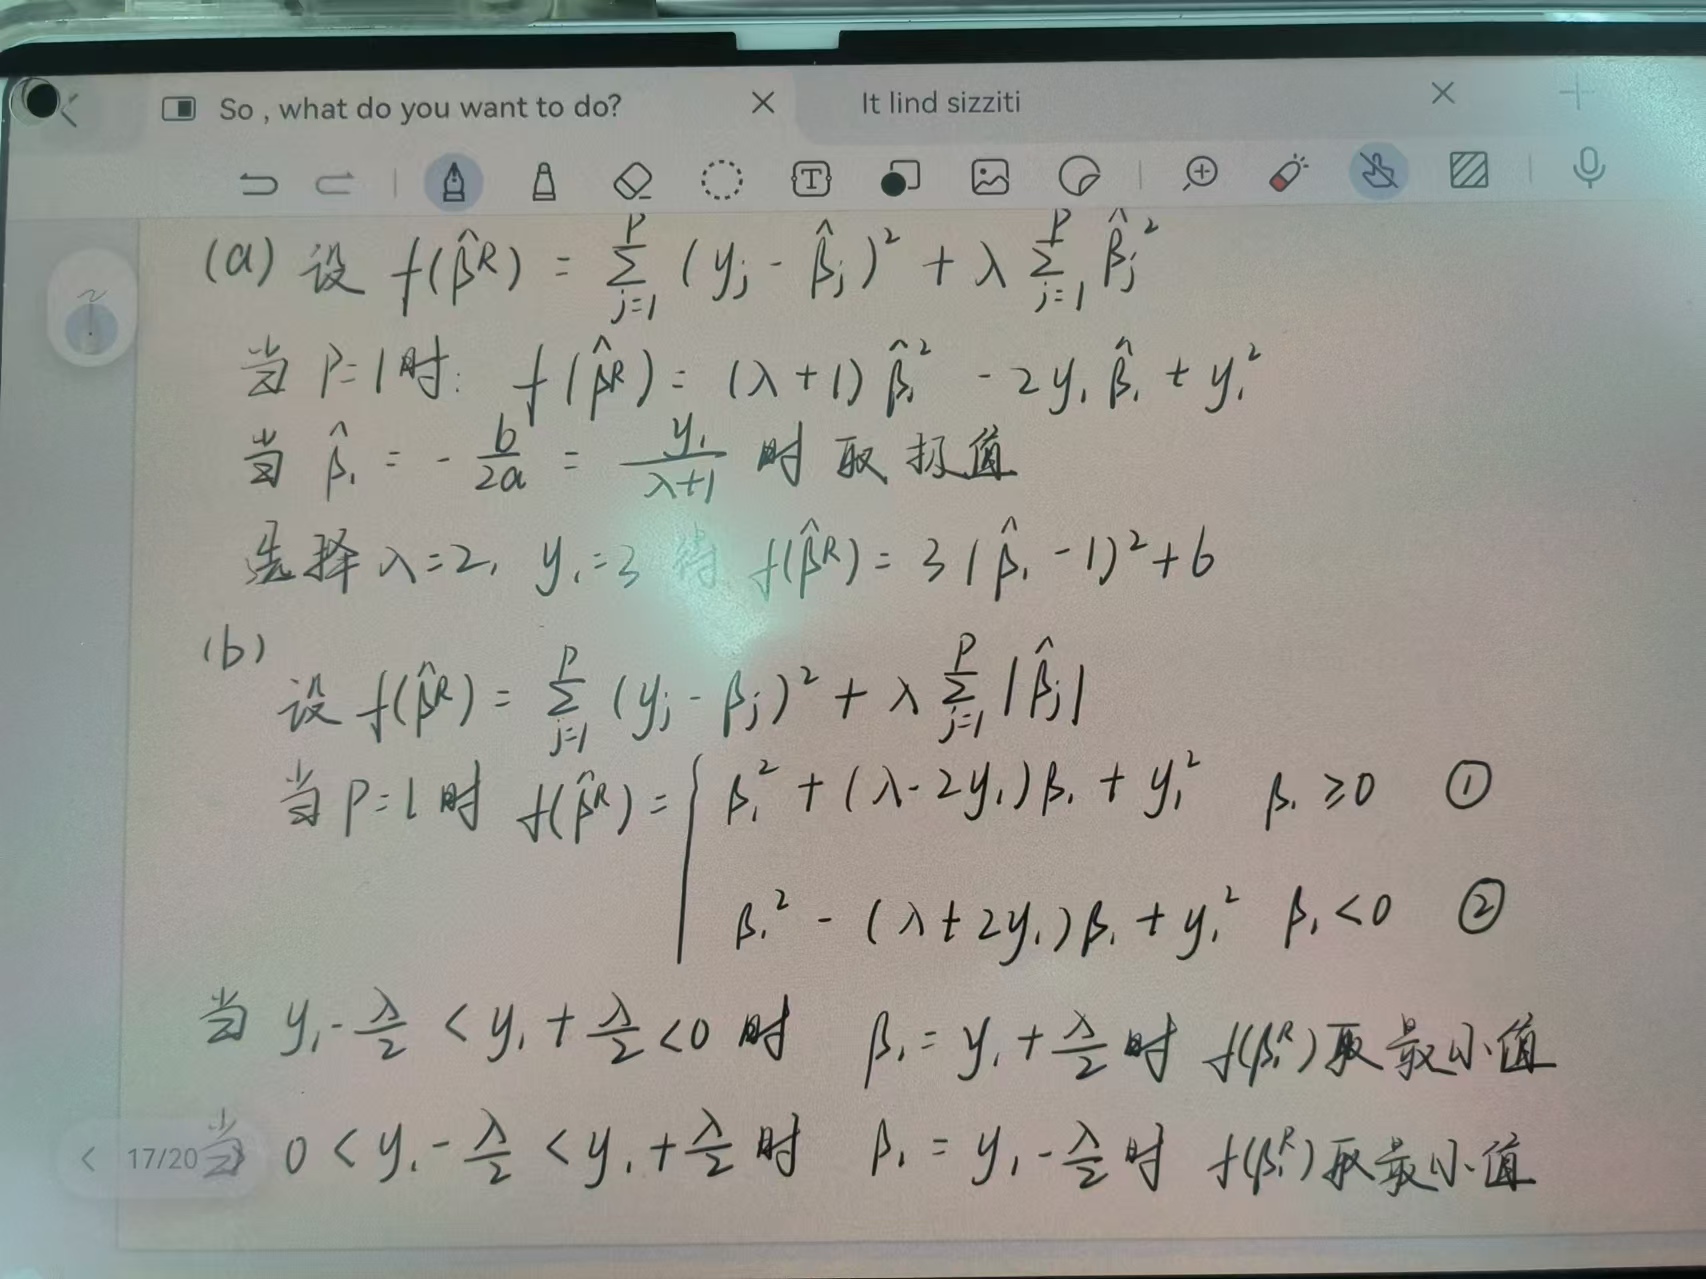 So , what do you want to do?
It lind sizziti
(a) 设 f(β̂ᴿ) = Σ_{j=1}^{P} (yⱼ - β̂ⱼ)² + λ Σ_{j=1}^{P} β̂ⱼ²
当 P=1时: f(β̂ᴿ) = (λ+1) β̂₁² - 2y₁ β̂₁ + y₁²
当 β̂₁ = - b/2a = y₁/λ+1 时 取 极值
选择 λ=2, y₁=3 得 f(β̂ᴿ) = 3(β̂₁ -1)² + 6
(b)
设 f(β̂ᴿ) = Σ_{j=1}^{P} (yⱼ - βⱼ)² + λ Σ_{j=1}^{P} |β̂ⱼ|
当 P=1时 f(β̂ᴿ) = { β₁² + (λ-2y₁)β₁ + y₁² β₁ ≥0 ①
β₁² - (λ+2y₁)β₁ + y₁² β₁ <0 ②
当 y₁ - λ/2 < y₁ + λ/2 <0 时 β₁ = y₁ + λ/2 时 f(β₁ᴿ) 取 最小值
当 0 < y₁ - λ/2 < y₁ + λ/2 时 β₁ = y₁ - λ/2 时 f(β₁ᴿ) 取 最小值
17/20